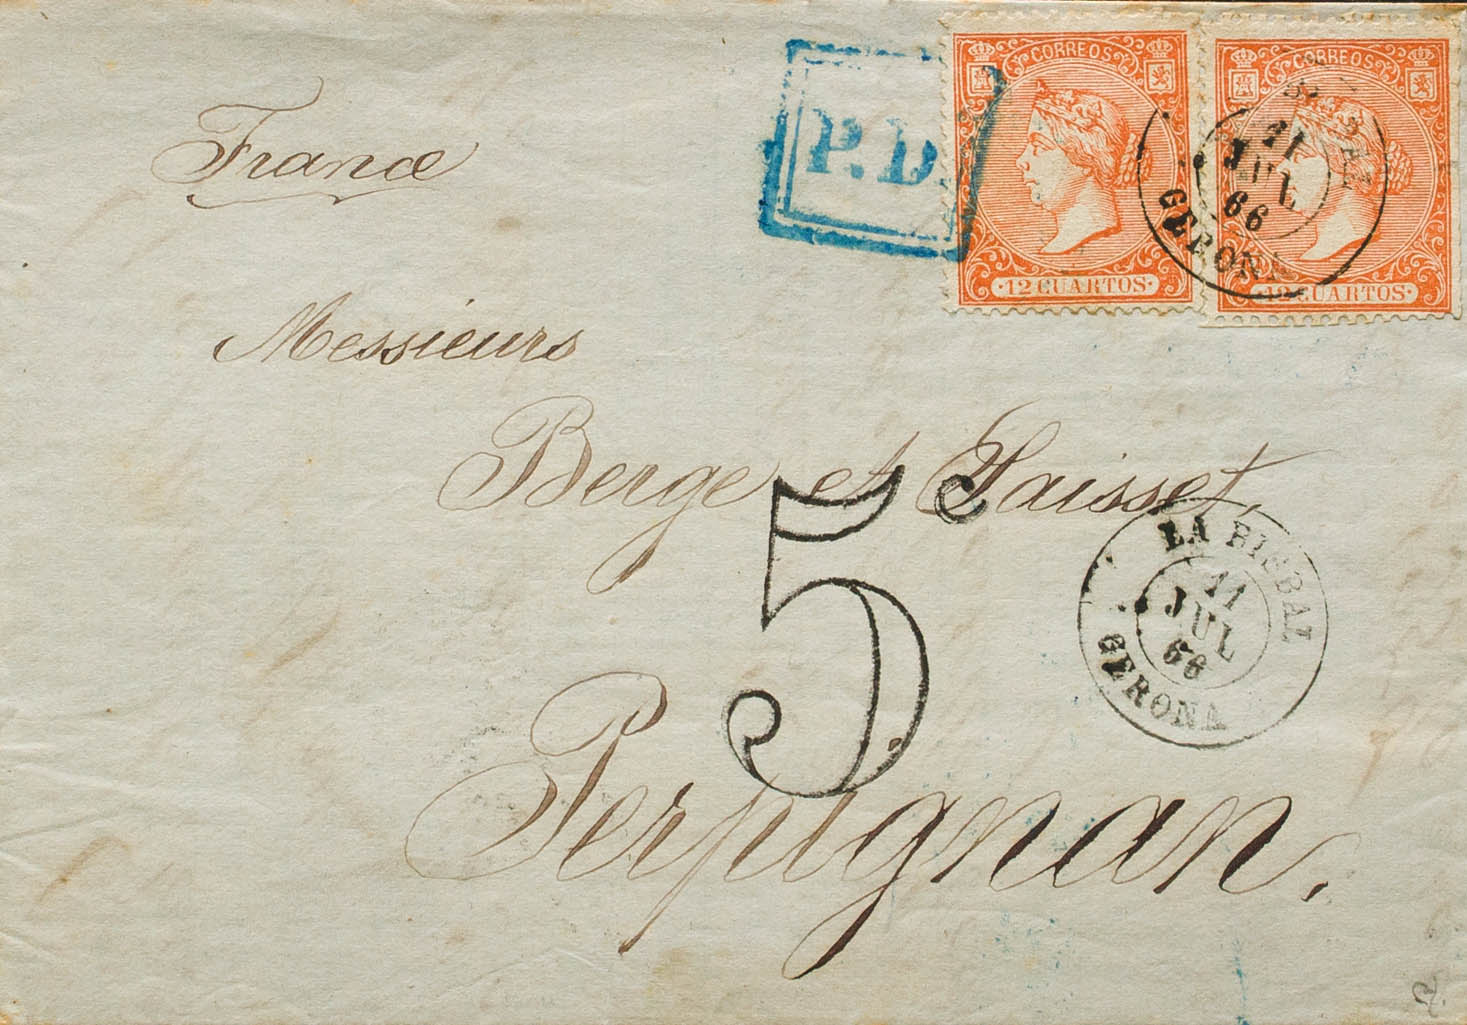 CORREOS
CORREOS
P.D.
12 CUARTOS
12 CUARTOS
11
JUL
66
GERONA
France
Messieurs
Berge et Saisset,
5c
LA BISBAL
11
JUL
66
GERONA
Perpignan.